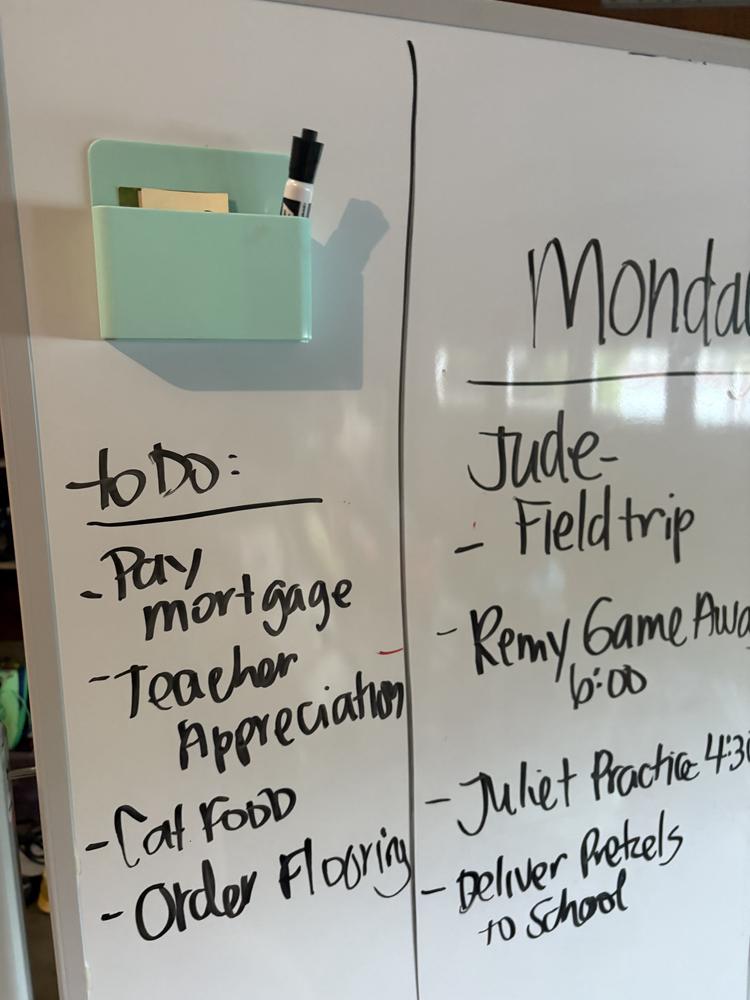 to Do:
- Pay
mortgage
- Teacher
Appreciation
- Cat Food
- Order Flooring
Monda
Jude-
- Field trip
- Remy Game Awa
6:00
- Juliet Practice 4:30
- Deliver Pretzels
to School